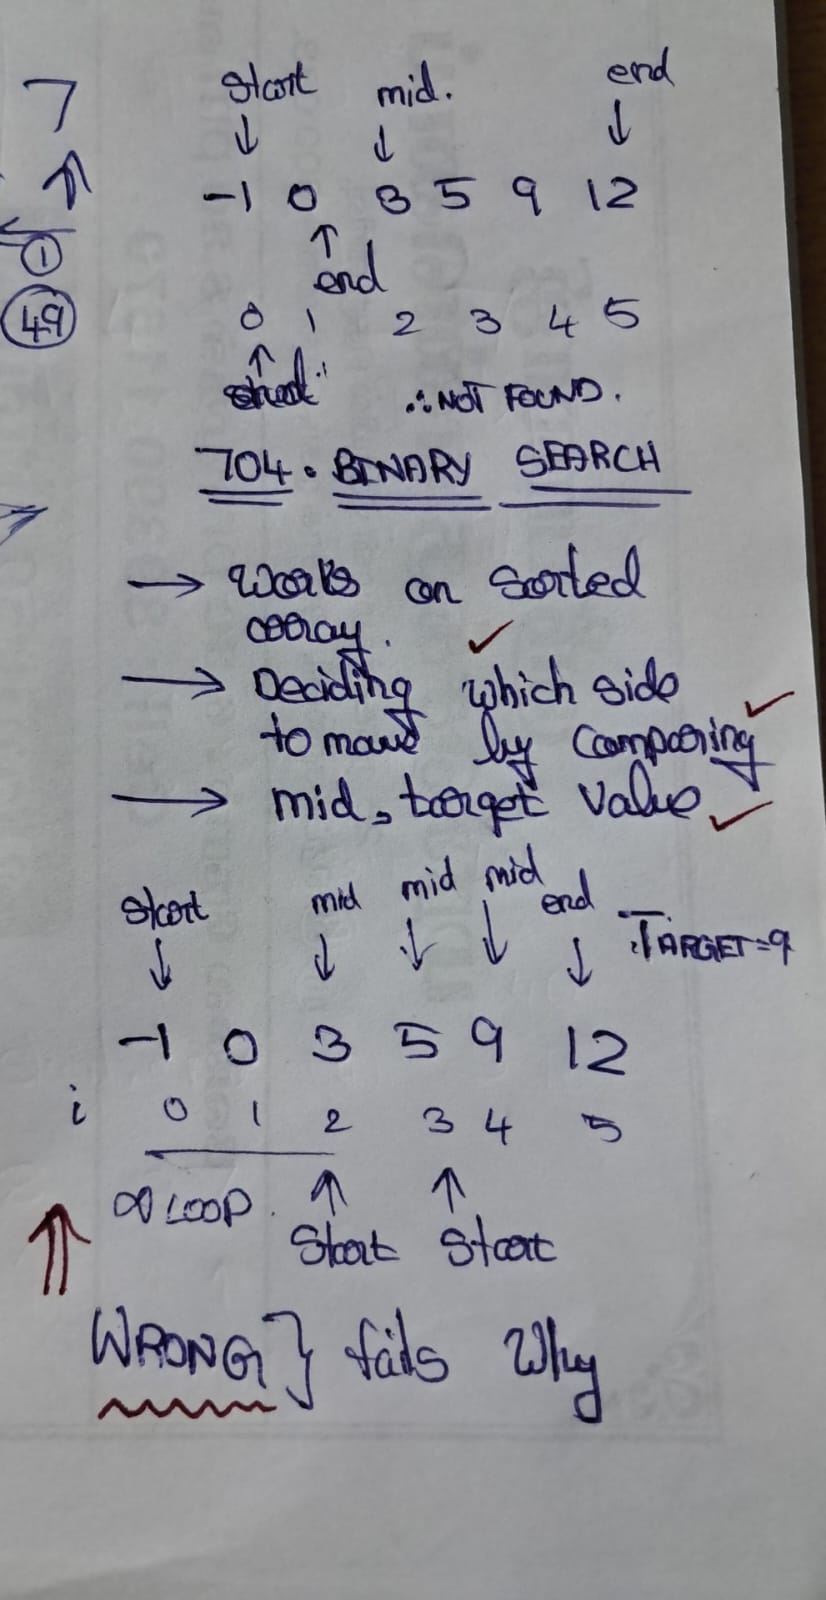 7
start mid. end
↓ ↓ ↓
↑ -1 0 3 5 9 12
↑
① end
49 0 1 2 3 4 5
↑
∴ NOT FOUND.
704. BINARY SEARCH
→ Works on Sorted
array. ✓
→ Deciding which side
to move by Comparing ✓
→ mid, target Value ✓
start mid mid mid end
↓ ↓ ↓ ↓ ↓ TARGET=9
-1 0 3 5 9 12
i 0 1 2 3 4 5
∞ LOOP. ↑ ↑
Start Start
WRONG } fails Why